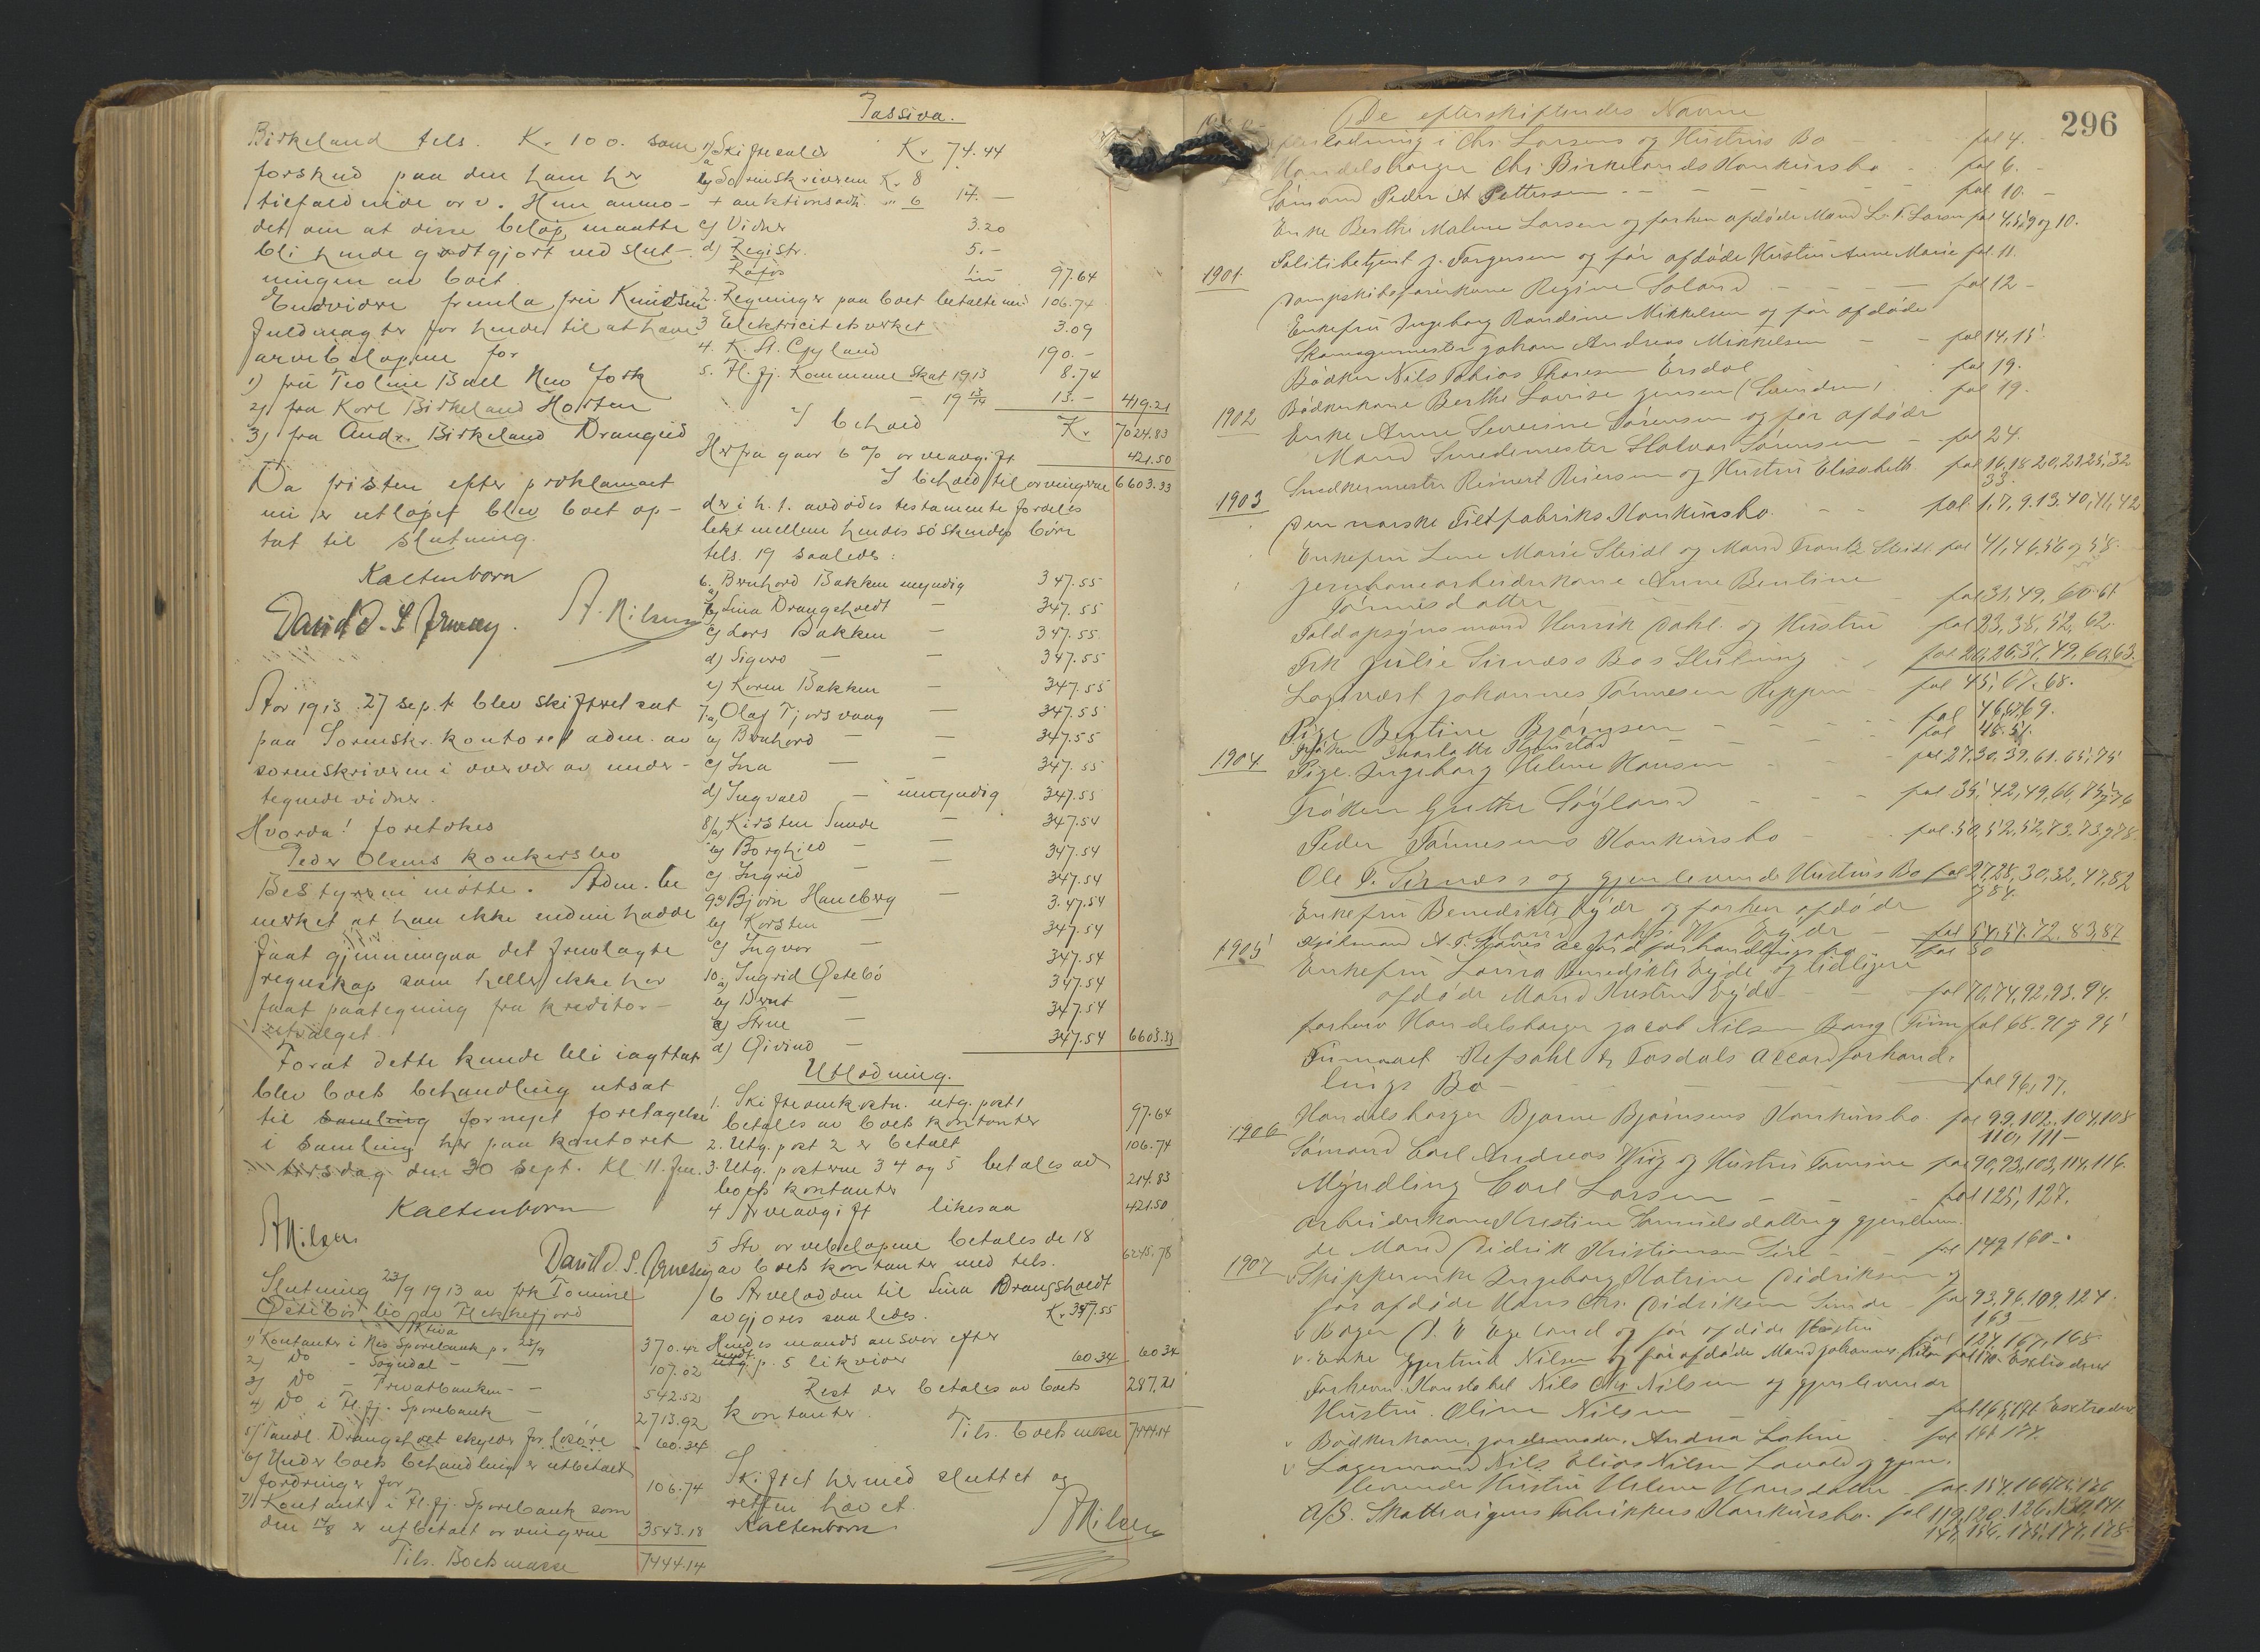 Birkeland tels. Kr. 100. som
forskud paa den ham her
tilfaldende arv. Hun anmo-
det om at disse beløp maatte
bli hende godtgjort ved slut-
ningen av boet.
Endvidere fremla fru Knudsen
fuldmagter for hende til at hæve
arvebeløpene for
1) fru Teoline Ball New York
2) fra Karl Birkeland Horten
3) fra Andr. Birkeland Drangeid
Da fristen efter proklamaet
nu er utløpet blev boet op-
tat til slutning.
Kaltenborn
David S. Arnesen. A. Nilsen
Aar 1913 27 sept. blev skifteret sat
paa Sorenskr. kontoret adm. av
sorenskriveren i overvær av under-
tegnede vidner.
Hvorda! foretokes
Peder Olsens konkursbo
Bestyreren møtte. Adm. be
merket at han ikke endnu hadde
faat gjennemgaa det fremlagte
regnskap som heller ikke har
faat paategning fra kreditor-
utvalget.
Forat dette kunde bli iagttat
blev boets behandling utsat
til samling fornyet foretagelse
i samling her paa kontoret
tirsdag den 30 sept. Kl 11. fm.
Kaltenborn
A Nilsen
David S. Arnesen
Slutning 23/9 1913 av frk Tomine
Østebøs bo av Flekkefjord
Aktiva
1) Kontanter i Nes Sparebank pr 23/9 370.42
2) Do - Sogndal - 107.02
3) Do - Privatbanken - 542.52
4) Do i Fl.fj. Sparebank - 2713.92
5) Tandl. Drangsholt skylder for løsøre 60.34
6) Under boets behandling er utbetalt
fordringer for 106.74
7) Kontanter i Fl.fj. Sparebank som
den 14/8 er utbetalt arvingerne 3543.18
Tils. Boets masse 7444.14
Passiva.
1) a) Skiftesaler Kr 74.44
b) Sorenskriveren Kr 8
+ auktionsadv. " 6 14.-
c) Vidner 3.20
d) Registr. 5.-
97.64
2. Regninger paa boet betalte med 106.74
3 Elektricitetsverket 3.09
4. K. A. Gyland 190.-
5. Fl.fj. Kommune skat 1913 8.74
- 19 13/14 13.- 419.21
I behold Kr 7024.83
Herfra gaar 6 % arveavgift 421.50
I behold til arvingerne 6603.33
der i h. t. avdødes testamente fordeles
likt mellem hendes søskendes børn
tels. 19 saaledes:
6. a) Bernhard Bakken myndig 347.55
b) Lina Drangsholdt - 347.55
c) Lars Bakken - 347.55
d) Sigvard - - 347.55
e) Karen Bakken - 347.55
7. a) Olaf Tjorsvaag - 347.55
b) Bernhard - - 347.55
c) Ina - - 347.55
d) Ingvald - umyndig 347.55
8/ a) Kirsten Sunde - 347.54
b) Borghild - - 347.54
c) Ingrid - - 347.54
9 a) Bjørn Haneberg - 347.54
b) Karsten - 347.54
c) Ingvar - 347.54
10 a) Ingrid Østebø 347.54
b) Bernt - 347.54
c) Stene - 347.54
d) Øivind - 347.54 6603.33
Utlodning.
1. Skifteomkostn. utg. post 1
betales av boets kontanter 97.64
2. Utg. post 2 er betalt 106.74
3. Utg. posterne 3 4 og 5 betales av
boets kontanter 214.83
4 Arveavgift likesaa 421.50
5 Av arvebeløpene betales de 18
av boets kontanter med tels. 6245.78
6 Arvelodden til Lina Drangsholdt
avgjøres saaledes. Kr 347.55
Hendes mands ansvar efter
indt. p. 5 likvider 60.34 60.34
Rest der betales av boets 287.21
kontanter.
Tils. boets masse 7444.14
Skiftet hermed sluttet og
retten hævet.
Kaltenborn A Nilsen
296
De efterskiftendes Navne
Efterlodning i Chr. Larsens og Hustrus Bo - fol 4.
Handelsborger Chr. Birkelands Konkursbo - fol 6. -
Sømand Peder A Pettersen - - - fol 10. -
Enke Berthe Malene Larsen og forhen afdøde Mand L. T. Larsen fol 4, 5, 9 og 10.
1901. Politibetjent J. Torgersen og før afdøde Hustru Anne Marie fol 11.
Dampskibsførerkone Regine Soland - - - fol 12 -
Enkefru Ingeborg Randine Mikkelsen og før afdøde
Skomagermester Johan Andreas Mikkelsen - - fol 14, 15.
Bødker Nils Tobias Thoresen Ersdal fol 19.
1902 Bødkerkone Berthe Lovise Jensen (Svindsen) fol 19.
Enke Anne Severine Sørensen og før afdøde
Mand Smedemester Halvor Sørensen - fol 24.
Snedkermester Reinert Reiersen og Hustru Elisabeth fol 16, 18 20, 21 25, 32
33.
1903 Den norske Filtfabriks Konkursbo. - - fol. 1, 7, 9. 13. 40, 41, 42
Enkefru Lene Marie Steidl og Mand Frantz Steidl fol 41, 46, 56 og 58.
Jernbanearbeiderkone Anne Bentine
Tønnesdatter - - fol 31, 49, 60. 61
Toldopsynsmand Henrik Dahl og Hustru fol 23, 38, 52, 62.
Frk Julie Sirnæss Bos Slutning - fol 20, 26, 37, 49, 60, 63.
Logsvært Johannes Tønnesen - fol 45, 67. 68.
Pige Bertine Bjørnsen - - - fol 46, 69.
1904 Frøken fol 48. 51.
Pige Ingeborg Helene Hansen - - fol 27, 30, 39, 61. 65, 75
Frøken Grethe Søyland - - - fol 35, 42, 49, 66, 75, 76
Peder Tønnesens Konkursbo - - fol. 50, 52, 52, 73, 73, 78.
Ole P. Sirnæss og gjenlevende Hustrus Bo fol 27, 28, 30, 32, 47, 82
Enkefru Benedikte Eyde og forhen afdøde og 84.
Mand Eyde - fol 54, 57. 72. 83, 87
1905 A. T. Accordforhandlingsbo fol 80
Enkefru Benedikte Eyde og tidligere
afdøde Mand Eyde - - fol 70, 74, 92, 93. 94.
forhenv Handelsborger Jacob Nilsen fol 68. 91 og 95
Firmaet Refsahl & Tosdals Accordforhand-
lings Bo - - - - fol 96, 97.
Handelsborger Bjarne Bjørnsens Konkursbo - fol 99, 102, 104, 108
110, 111 -
1906 Sømand Carl Andreas Wiig og Hustru fol 90, 93, 103, 114, 116.
Myndling Carl Larsen - - - fol 125, 127.
Arbeiderkone Kristine Samuelsdatter og gjenleven-
de Mand Didrik Kristiansen - - fol 149, 160 -
1907 Skipperenke Ingeborg Katrine Didriksen og
før afdøde Hans Chr. Didriksen Sunde - fol 93, 96, 109, 124.
163 -
v Bager Egeland og før afdøde Hustru fol 127, 167, 168
v. Enke Gjertrud Nilsen og før afdøde Mand Johannes Nilsen fol 170. Extraderet
Forhenv. Konstabel Nils Chr. Nilsen og gjenlevende
Hustru Oline Nilsen - - fol 165, 171 Extraderet
v Bødkerkone, jordemoder, Andrea - fol 171 177.
v Lagermand Nils Elias Nilsen Lavold og gjen-
levende Hustru Helene Hansdatter - fol. 154, 166, 175, 176
A/S. Skotteviggens Fabrikkers Konkursbo. fol 119, 120, 126, 130, 141.
147, 156, 175, 177, 178